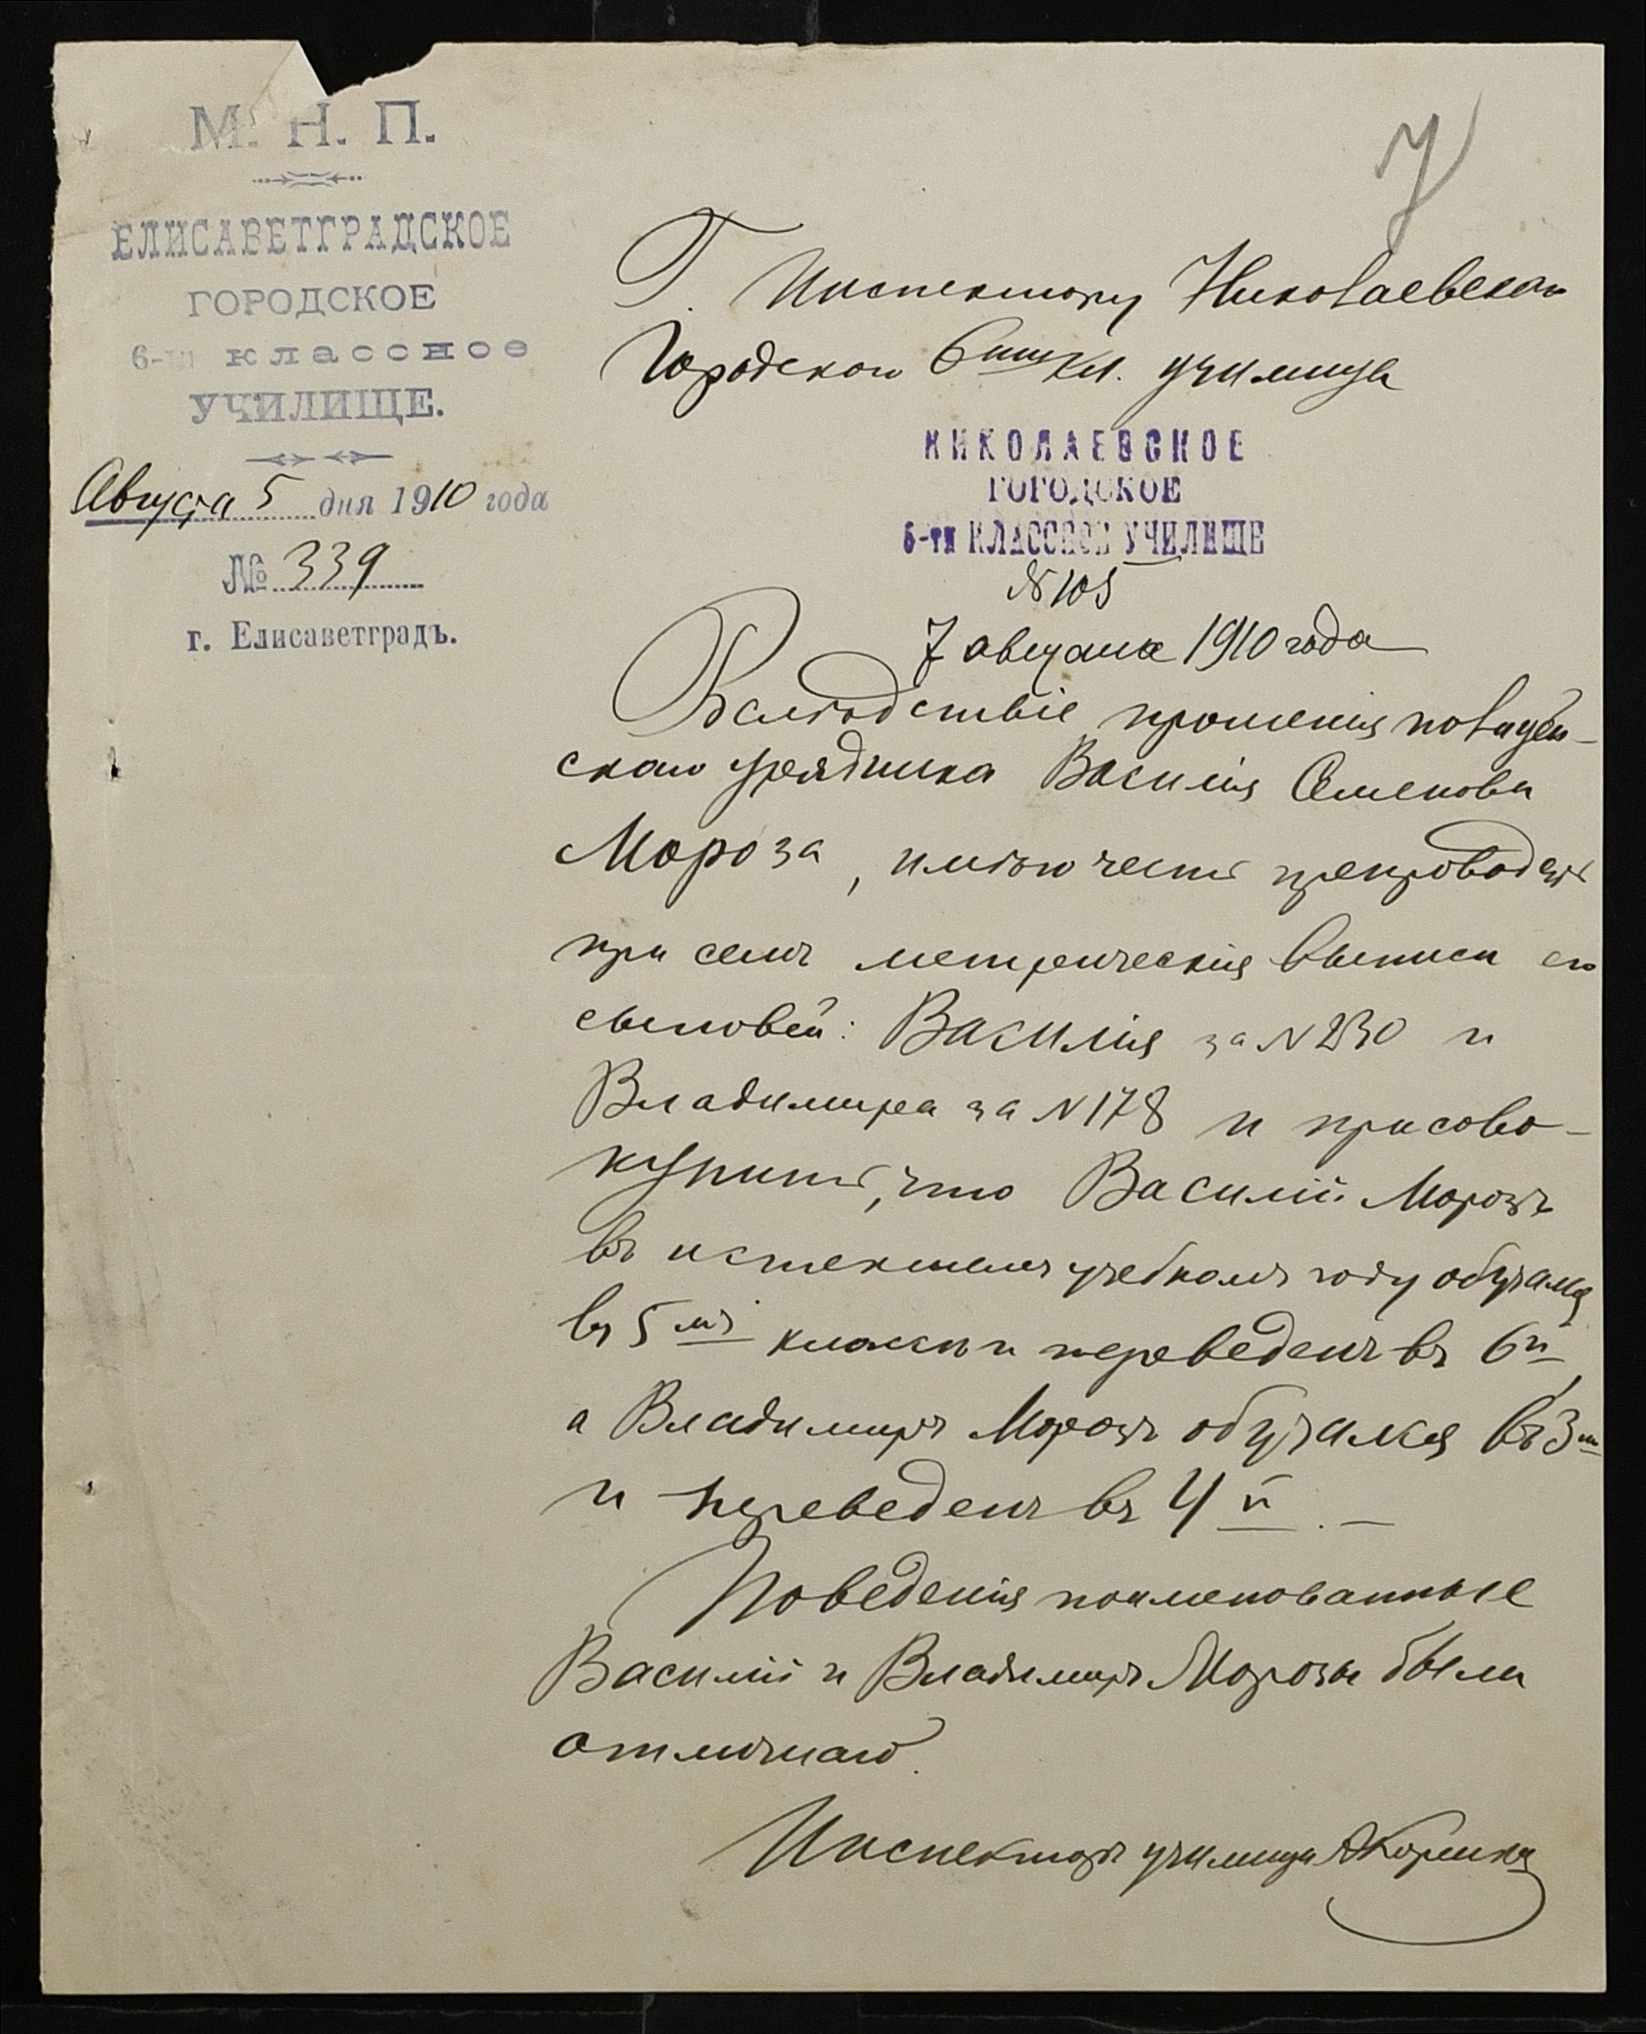 М. Н. П.
ЕЛИСАВЕТГРАДСКОЕ
ГОРОДСКОЕ
6-ти классное
УЧИЛИЩЕ.
Августа 5 дня 1910 года
№ 339
г. Елисаветградъ.
Г. Инспектору Николаевскаго
Городского 6ти кл. училища
НИКОЛАЕВСКОЕ
ГОРОДСКОЕ
6-ти КЛАССНОЕ УЧИЛИЩЕ
№ 105
7 августа 1910 года
Вслѣдствіе прошенія полицей-
скаго урядника Василія Семенова
Мороза, имѣю честь препроводить
при семъ метрическія выписи его
сыновей: Василія за № 230 и
Владимира за № 178 и присово-
купить, что Василій Морозъ
въ истекшемъ учебномъ году обучался
въ 5мъ классѣ и переведенъ въ 6й,
а Владимиръ Морозъ обучался въ 3мъ
и переведенъ въ 4й. —
Поведенія поименованные
Василій и Владимиръ Морозы были
отличнаго.
Инспекторъ училища